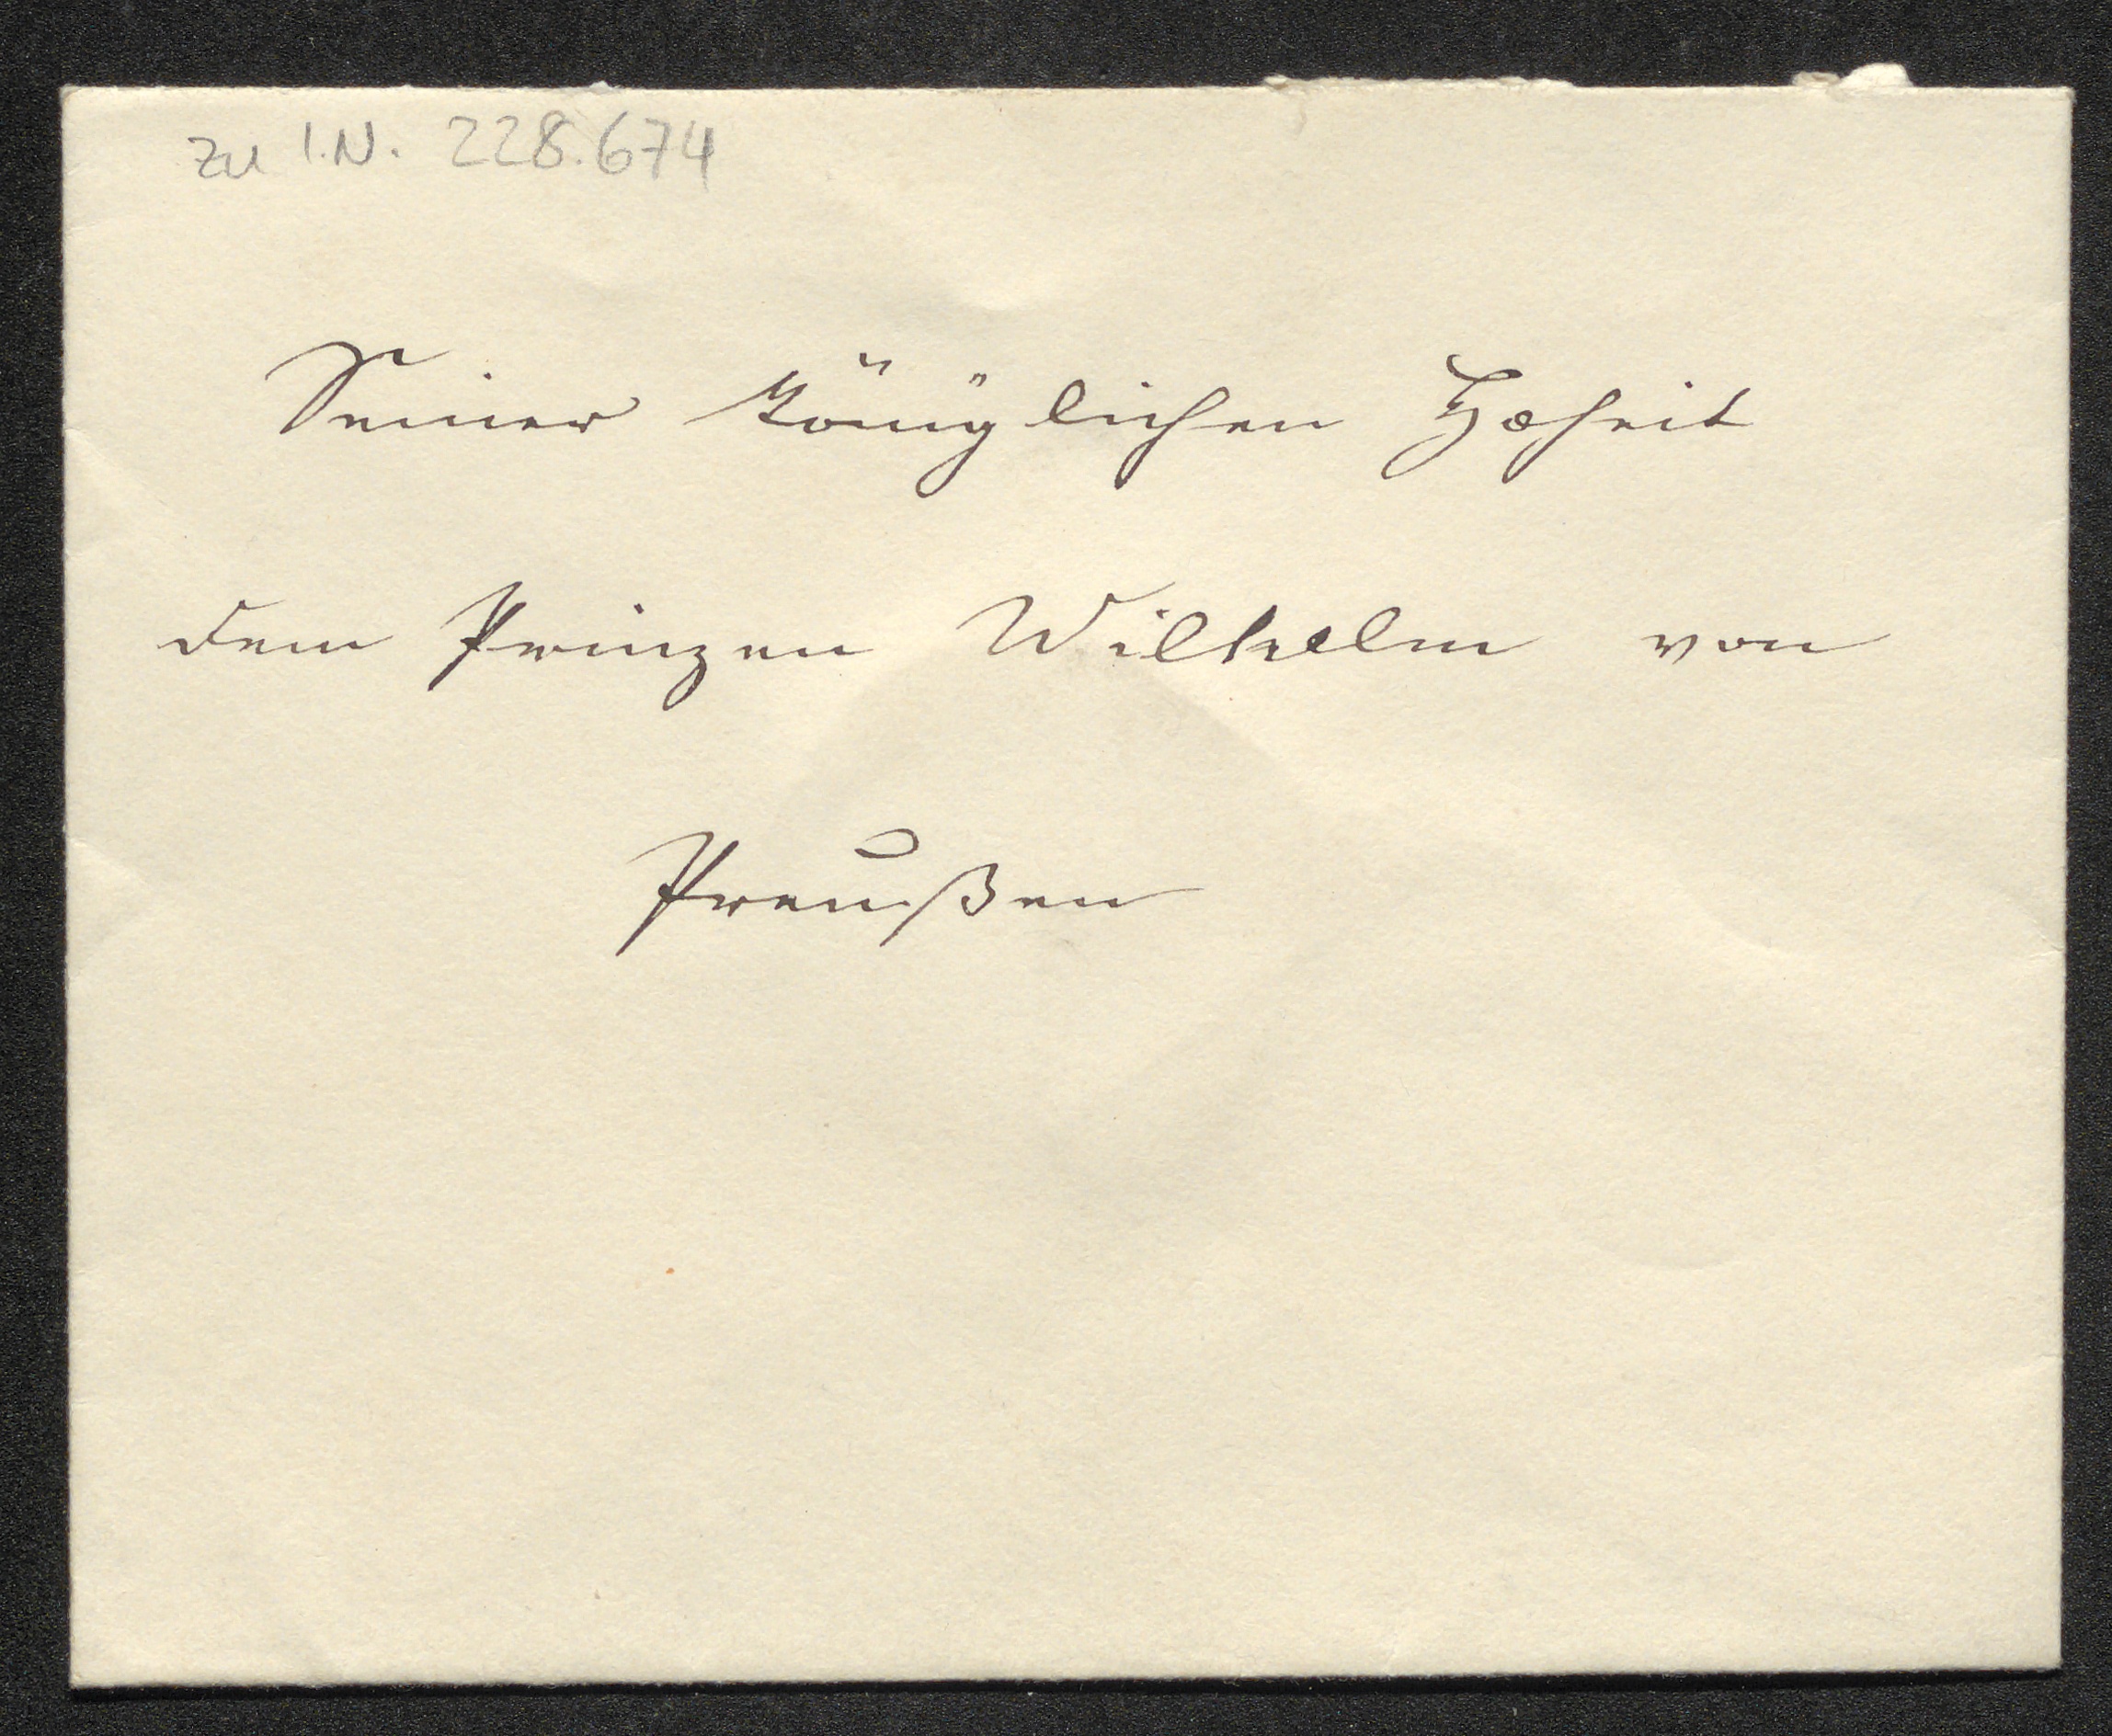 zu I.N. 228.674
Seiner Königlichen Hoheit
dem Prinzen Wilhelm von
Preußen